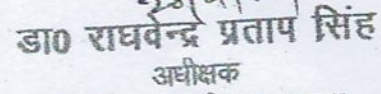 डा0 राघवेन्द्र प्रताप सिंह
अधीक्षक